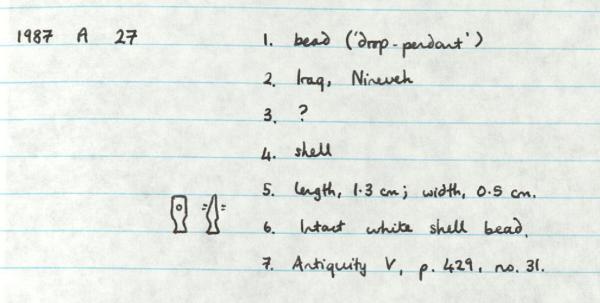 1987 A 27 1. bead ('drop-pendant')
2. Iraq, Nineveh
3. ?
4. shell
5. length, 1.3 cm; width, 0.5 cm.
6. Intact white shell bead.
7. Antiquity V, p. 429, no. 31.